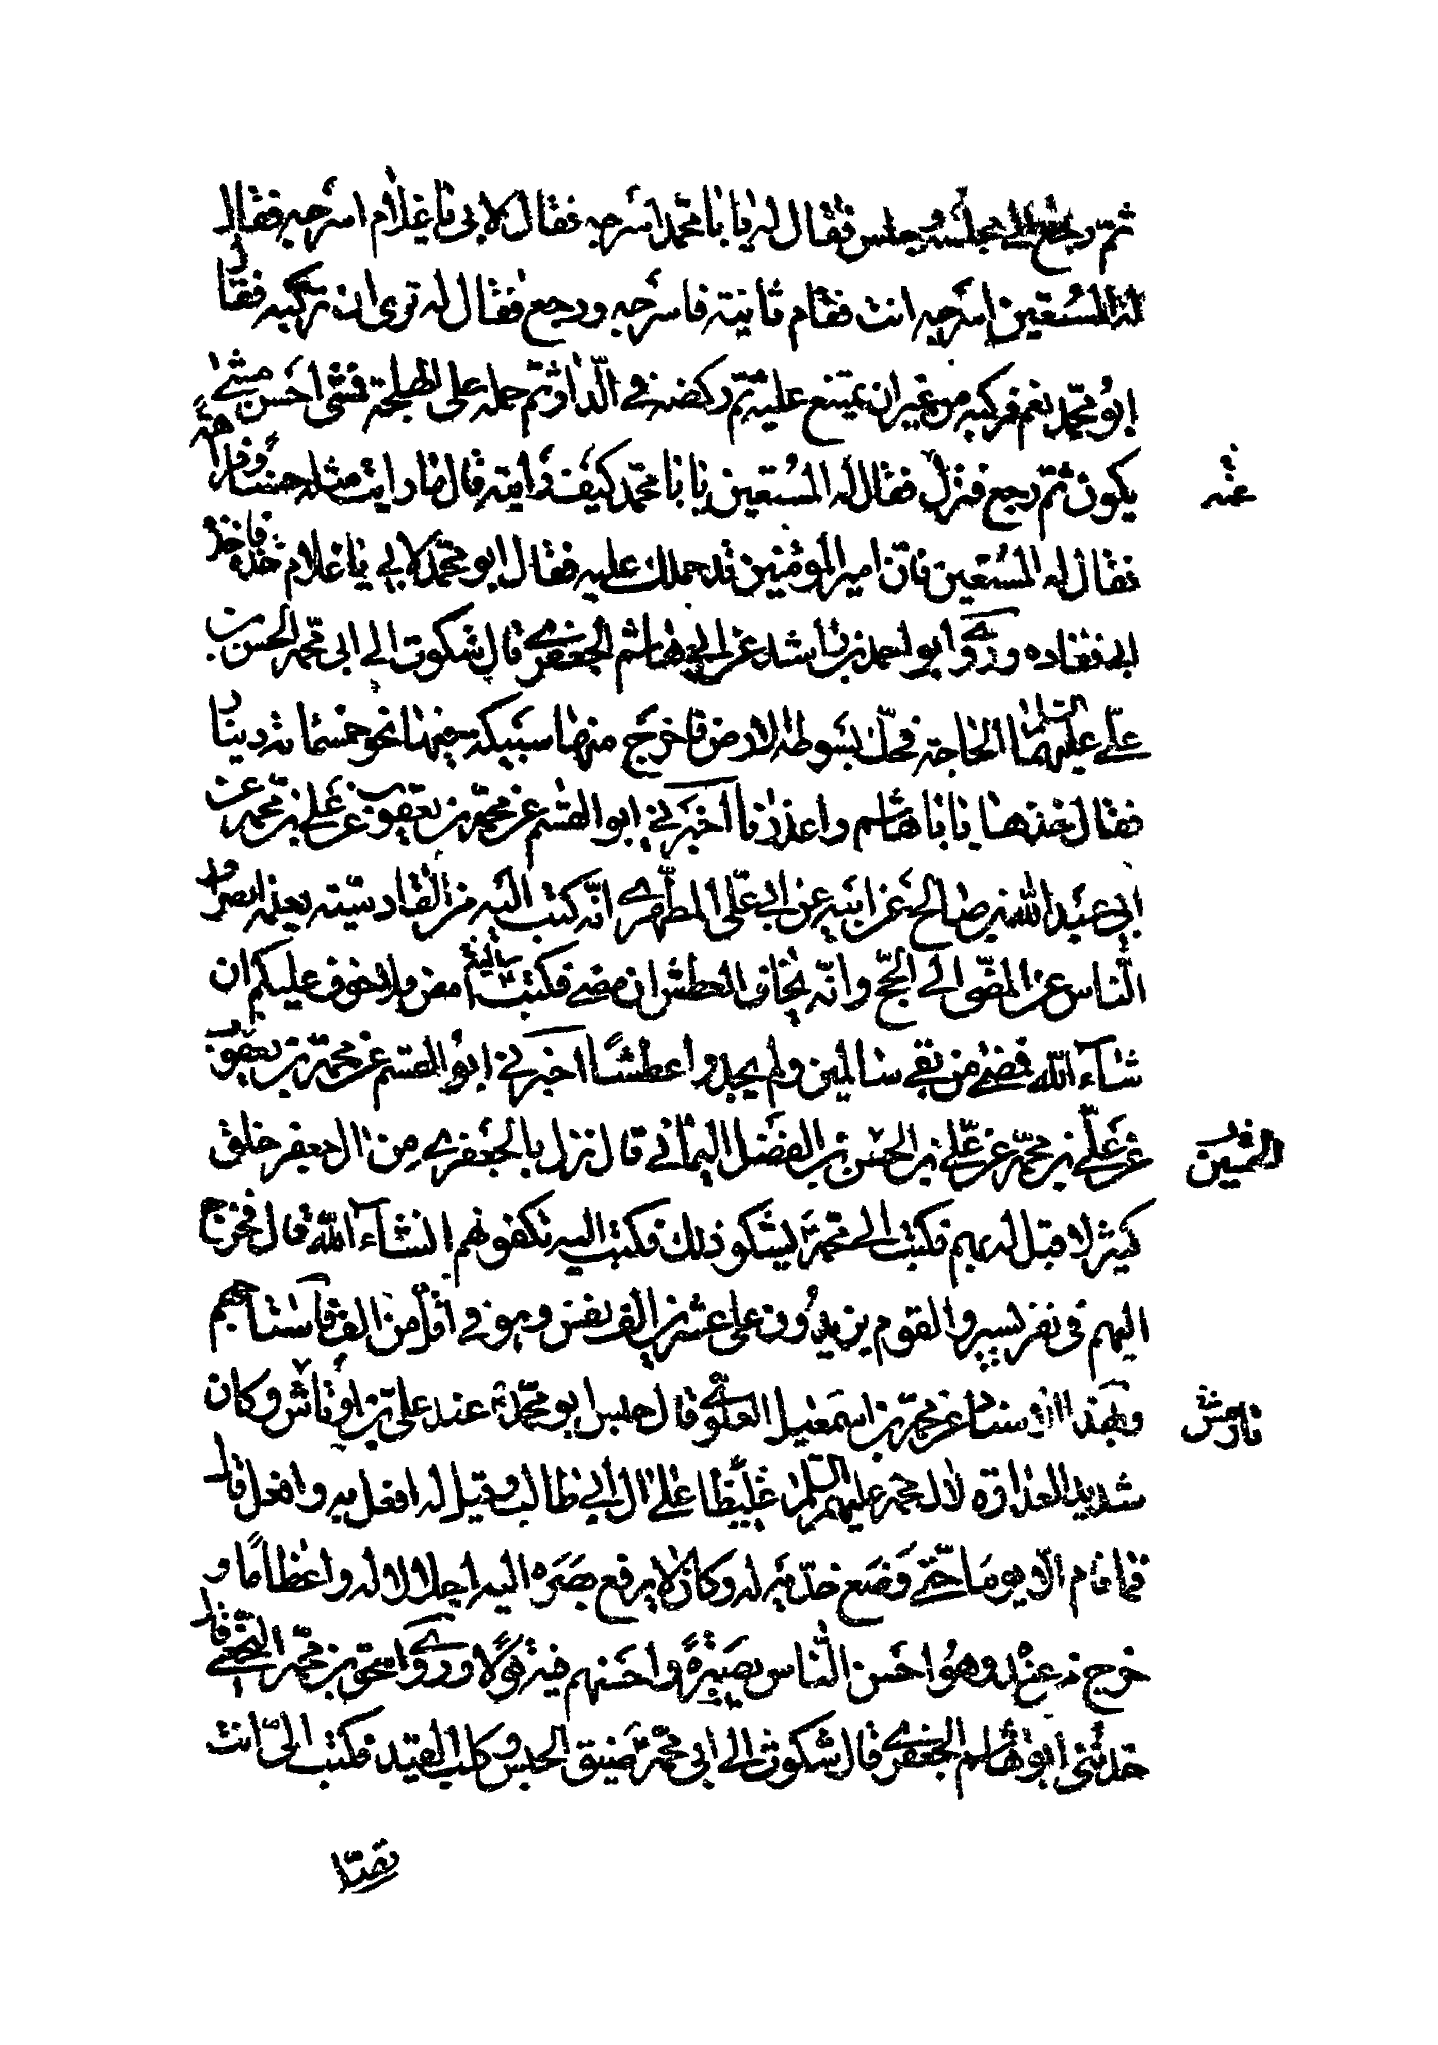 ثمّ رجع الى مجلسه وجلس فقال له يا با محمّد اسرجه فقال لابى يا غلام اسرجه فقال
له المستعين اسرجه انت فقام ثانية فاسرجه ورجع فقال له ترى ان تركبه فقال
ابو محمّد نعم فركبه من غير ان يمتنع عليه ثمّ ركضه في الدّار ثمّ حمله على الهملجة فمشى احسن مشى
يكون ثمّ رجع فنزل فقال له المستعين يا با محمّد كيف رايته قال ما رايت مثله حسنًا وفراهةً
عنه
فقال له المستعين فانّ امير المؤمنين قد حملك عليه فقال ابو محمّد لابي يا غلام خذه فاخذه
ابى فقاده وروى ابو احمد بن راشد عن ابى هاشم الجعفري قال شكوت الى ابى محمّد الحسن بن
علّي عليهما السلام الحاجة فحكّ بسوطه الارض فاخرج منها سبيكة فيها نحو خمسمائة دينار
فقال خذها يا با هاشم واعذرنا اخبرني ابو القسم عن محمّد بن يعقوب عن علي بن محمّد عن
ابي عبد الله بن صالح عن ابيه عن ابي علّى المطهّري انّه كتب اليه من القادسيّة يعلمه انصراف
النّاس عن المضّى الى الحجّ وانّه يخاف العطش ان مضى فكتب اليه امضوا ولا خوف عليكم ان
شاء الله فمضى من بقي سالمين ولم يجدوا عطشًا اخبرني ابو القسم عن محمّد بن يعقوب
عن علّي بن محمّد عن علّي بن الحسن بن الفضل اليماني قال نزل بالجعفري من ال جعفر خلق
الحسين
كثير لا قبل له بهم فكتب الى محمّد يشكو ذلك فكتب اليه تكفونهم انشاء الله قال فخرج
اليهم في نفر يسير والقوم يزيدون على عشرين الف نفس وهو في اقلّ من الف فاستباحهم
وبهذا الاسناد عن محمّد بن اسمعيل العلوي قال حبس ابو محمّد ع عند على بن اوتاش وكان
نارمش
شديد العداوة لال محمّد عليهم السلام غليظًا على ال ابي طالب وقيل له افعل به وافعل قال
فما اقام الّا يومًا حتّى وضع خدّيه له وكان لا يرفع بصره اليه اجلالا له واعظامًا و
خرج من عنده وهو احسن النّاس بصيرةً واحسنهم فيه قولًا وروى اسحق بن محمّد النخعي قال
حدّثنى ابو هاشم الجعفري قال شكوت الى ابي محمّد ضيق الحبس وكلب القيد فكتب الىّ انت
تصلّى